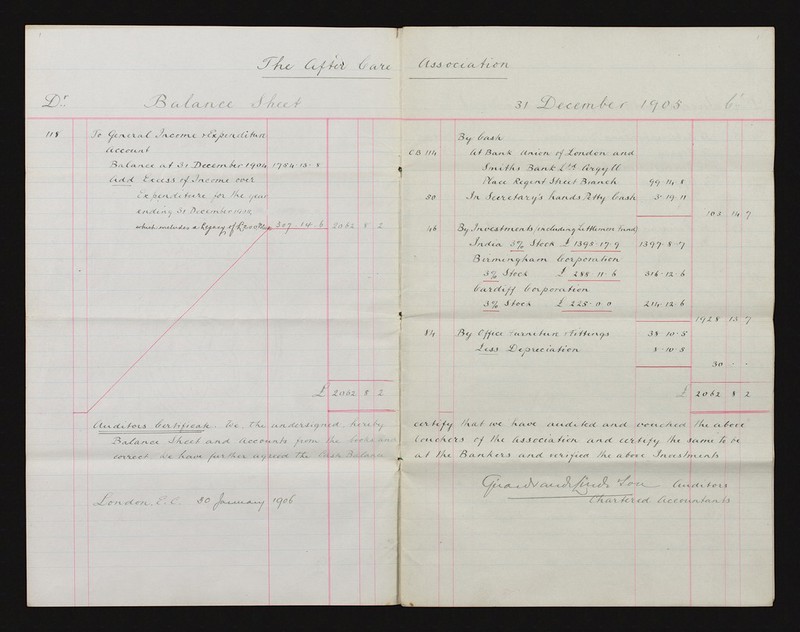 The After Care Association
Dr. Balance Sheet 31 December 1905 Cr.
118 To General Income & Expenditure
Account
Balance at 31 December 1904 1754 . 13 . 8
Add Excess of Income over
Expenditure for the year
ending 31 December 1905
which includes a Legacy of 307 . 14 . 6 2062 8 2
£ 2062 8 2
By Cash
CB 114 At Bank Union of London and
Smiths Bank Ltd Argyll
Place Regent Street Branch 99 . 14 . 8
80 In Secretary's hands Petty Cash 3 . 19 . 11
103 14 7
46 By Investments (including Settlement Fund)
India 3% Stock £ 1395 . 17 . 9 1397 . 8 . 7
Birmingham Corporation
3% Stock £ 288 . 11 . 6 316 . 12 . 6
Cardiff Corporation
3% Stock £ 225 . 0 . 0 214 . 12 . 6
1928 13 7
84 By Office Furniture & Fittings 38 . 10 . 5
Less Depreciation 8 . 10 . 5
30 - -
£ 2062 8 2
Auditors Certificate. We, the undersigned, hereby certify that we have audited and vouched the above
Balance Sheet and Accounts from the Books and Vouchers of the Association and certify the same to be
correct. We have further agreed the Cash Balance at the Bankers and verified the above Investments
London, E.C. 30 January 1906
Son Auditors
Chartered Accountants